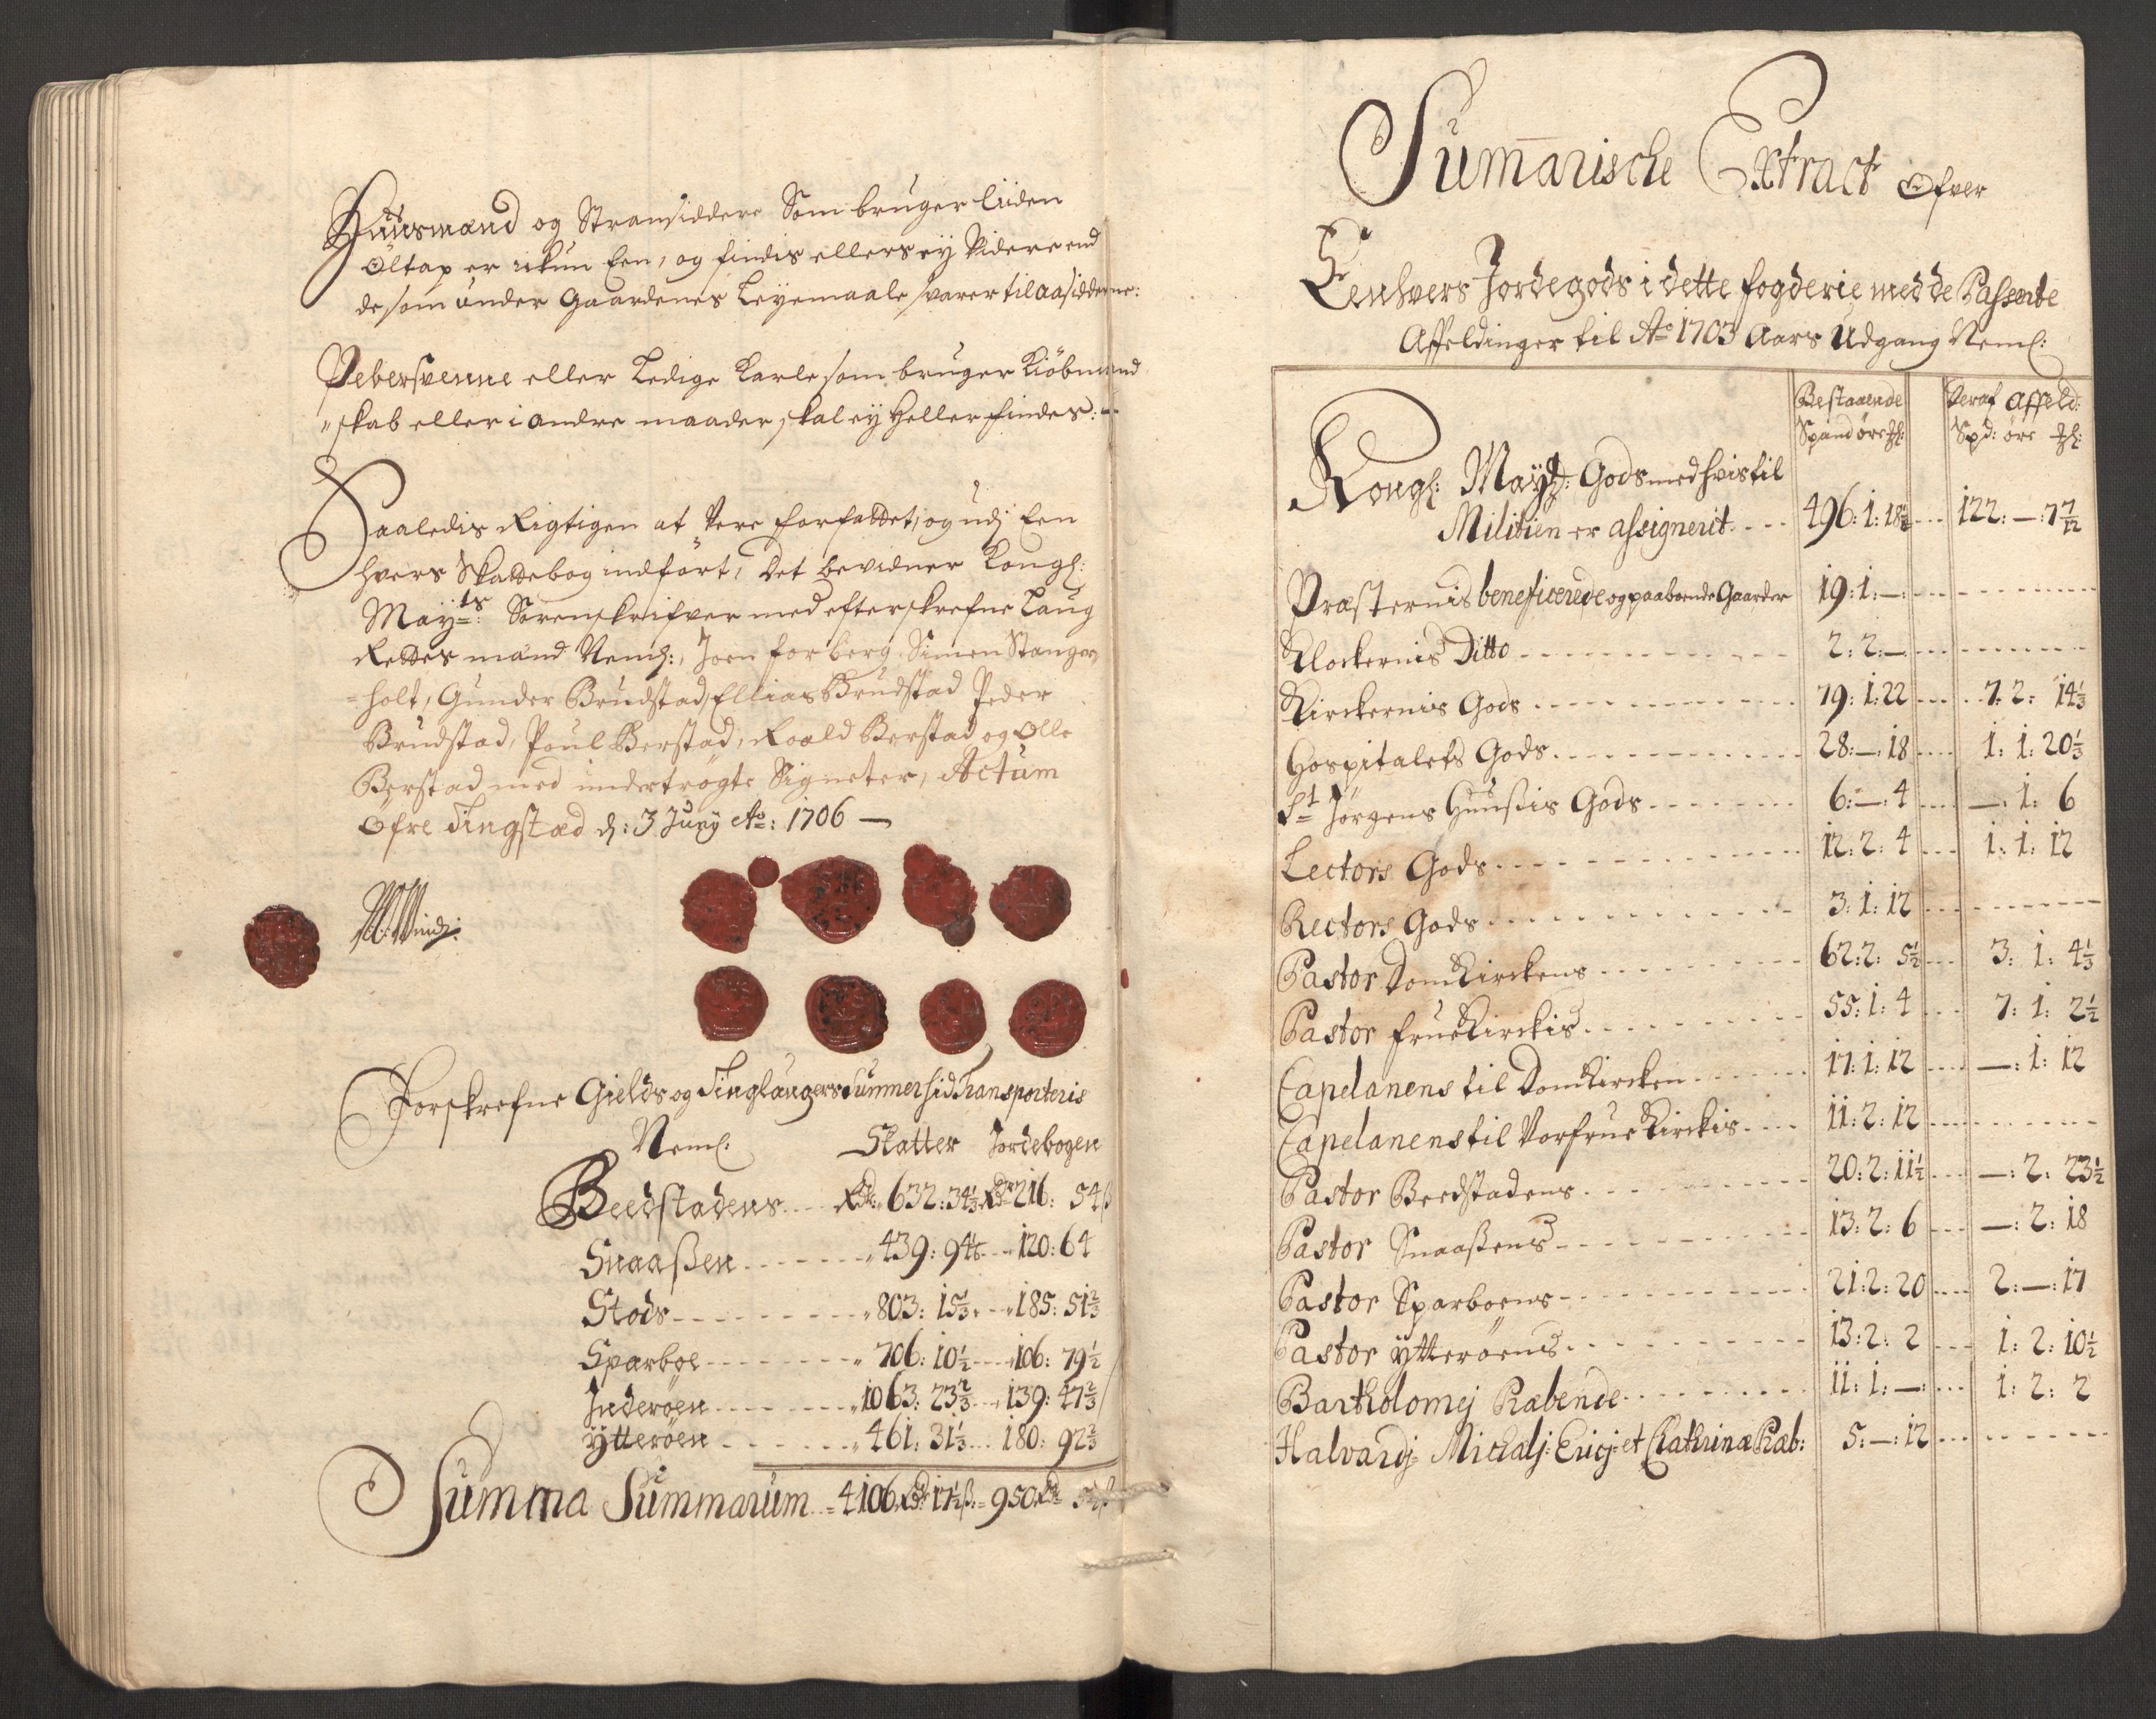 Huusmænd og Stransiddere Som bruger liiden
Øltap er ikun Een, og findis ellers ej Videre end
de som under Gaardenes Leyemaale svarer til aasidderne:
Pebersvenne eller Ledige Karle som bruger Kiöbmand
"skab eller i andre maader, skal ey Heller findes: —
Saaledis Rigtigen at Vere forfattet, og udj Een
hvers Skattebog indført, Det bevidner Kongl:
Mayts: Sorenskrifver med efterskrefne Laug
Rettes mænd Neml:, Joen forberg Simen Stanger
=holt, Gunder Brudstad, Ellias Brudstad Peder
Brudstad, Poul Berstad, Roald Berstad og Olle
Berstad med undertrögte Signeter, Actum
Øfre Tingstæd d: 3 Junij Ao: 1706 —
Forskrefne Gields og Tinglaugers Summer hid Transporteris
Neml. Skatter Jordebogen
Beedstadens .... Rdr 632: 34⅓ Rdr 216: 54 ß
Snaaßen ....... " 439: 94⅙ .... " 120: 64
Stods ........ " 803: 15⅓ .... " 185: 51⅔
Sparboe ........ " 706: 10½ .... " 106: 79½
Inderöen ....... " 1063: 23⅔ .... " 139: 47⅔
Ytteröen ....... " 461: 31⅓ .... 180: 92⅔
Summa Summarum .. = 4106 Rdr 17½ ß = 950 Rdr
Sumarische Extract Øfver
Eenhvers Jordegods i dette fogderie med de Passerede
Affeldinger til Ao 1703 Aars Udgang Neml:
Bestaaende Deraf Affeld:
Spand öre Spd: öre
Kongl: Mayts: Gods med hvis til
Militien er assignerit ... 496: 1: 18½ ... 122: —: 7 7/12
Præsternis beneficerede og paaboende Gaarder 19: 1: —
Klockernis Ditto ........ 2: 2: —
Kirckernis Gods ........ 79: 1: 22 .... 7: 2: 14⅓
Hospitalets Gods ........ 28: —: 18 .... 1: 1: 20⅓
St Jørgens Huußis Gods ....... 6: —: 4 .... —: 1: 6
Lectors Gods ........ 12: 2: 4 .... 1: 1: 12
Rectors Gods ........ 3: 1: 12
Pastor DomKirckens ........ 62: 2: 5½ .... 3: 1: 4⅓
Pastor frueKirckis ........ 55: 1: 4 .... 7: 1: 2½
Capelanens til DomKircken ...... 17: 1: 12 .... —: 1: 12
Capelanens til Vorfrue Kirckis .... 11: 2: 12
Pastor Beedstadens ........ 20: 2: 11½ .... —: 2: 23½
Pastor Snaaßens ........ 13: 2: 6 .... —: 2: 18
Pastor Sparboens ........ 21: 2: 20 .... 2: —: 17
Pastor Ytterøens ........ 13: 2: 2 .... 1: 2: 10½
Bartholomej Præbende ........ 11: 1: — .... 1: 2: 2
Halvardj Michalj: Ericj et Chathrinæ Præb: 5: —: 12